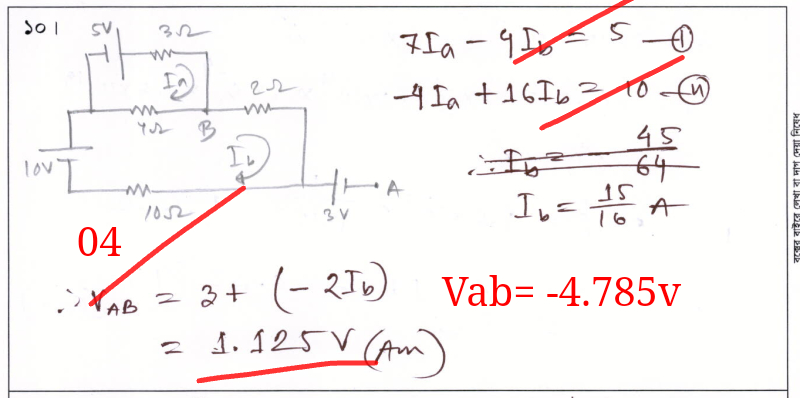 ১০।
5V 3Ω
Ia
4Ω B 2Ω
10V Ib
10Ω 3V A
7Ia - 4Ib = 5 —①
-4Ia + 16Ib = 10 —⑪
∴ Ib = 45/64
Ib = 15/16 A
04
∴ VAB = 3 + (-2Ib)
= 1.125V (Am)
Vab= -4.785v
বক্সের বাইরে লেখা বা দাগ দেয়া নিষেধ